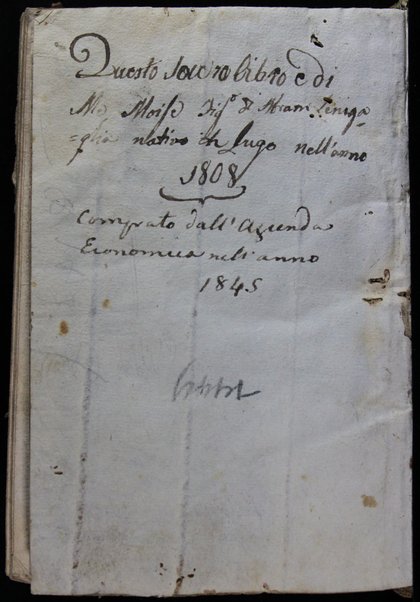 Questo sacro libro è di
Me Moise Figº di Abram Siniga
=glia nativo di Lugo nell'anno
1808
Comprato dall'Azienda
Economica nell'anno
1845